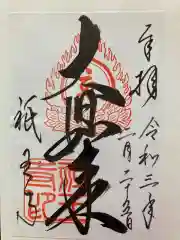 奉拝
令和三年
二月二十五日
大日如来
祇王寺